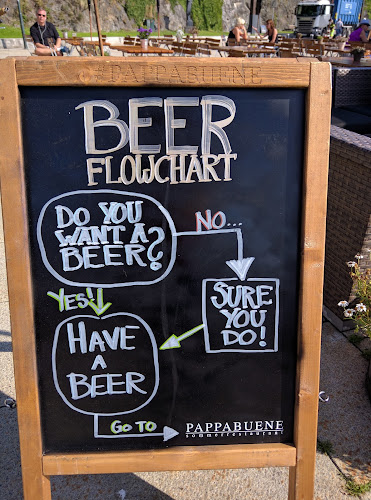 #PAPPABUENE
BEER
FLOWCHART
DO YOU
WANT A
BEER?
NO...
SURE
YOU
DO!
YES!
HAVE
A
BEER
GO TO
PAPPABUENE
sommerrestaurant